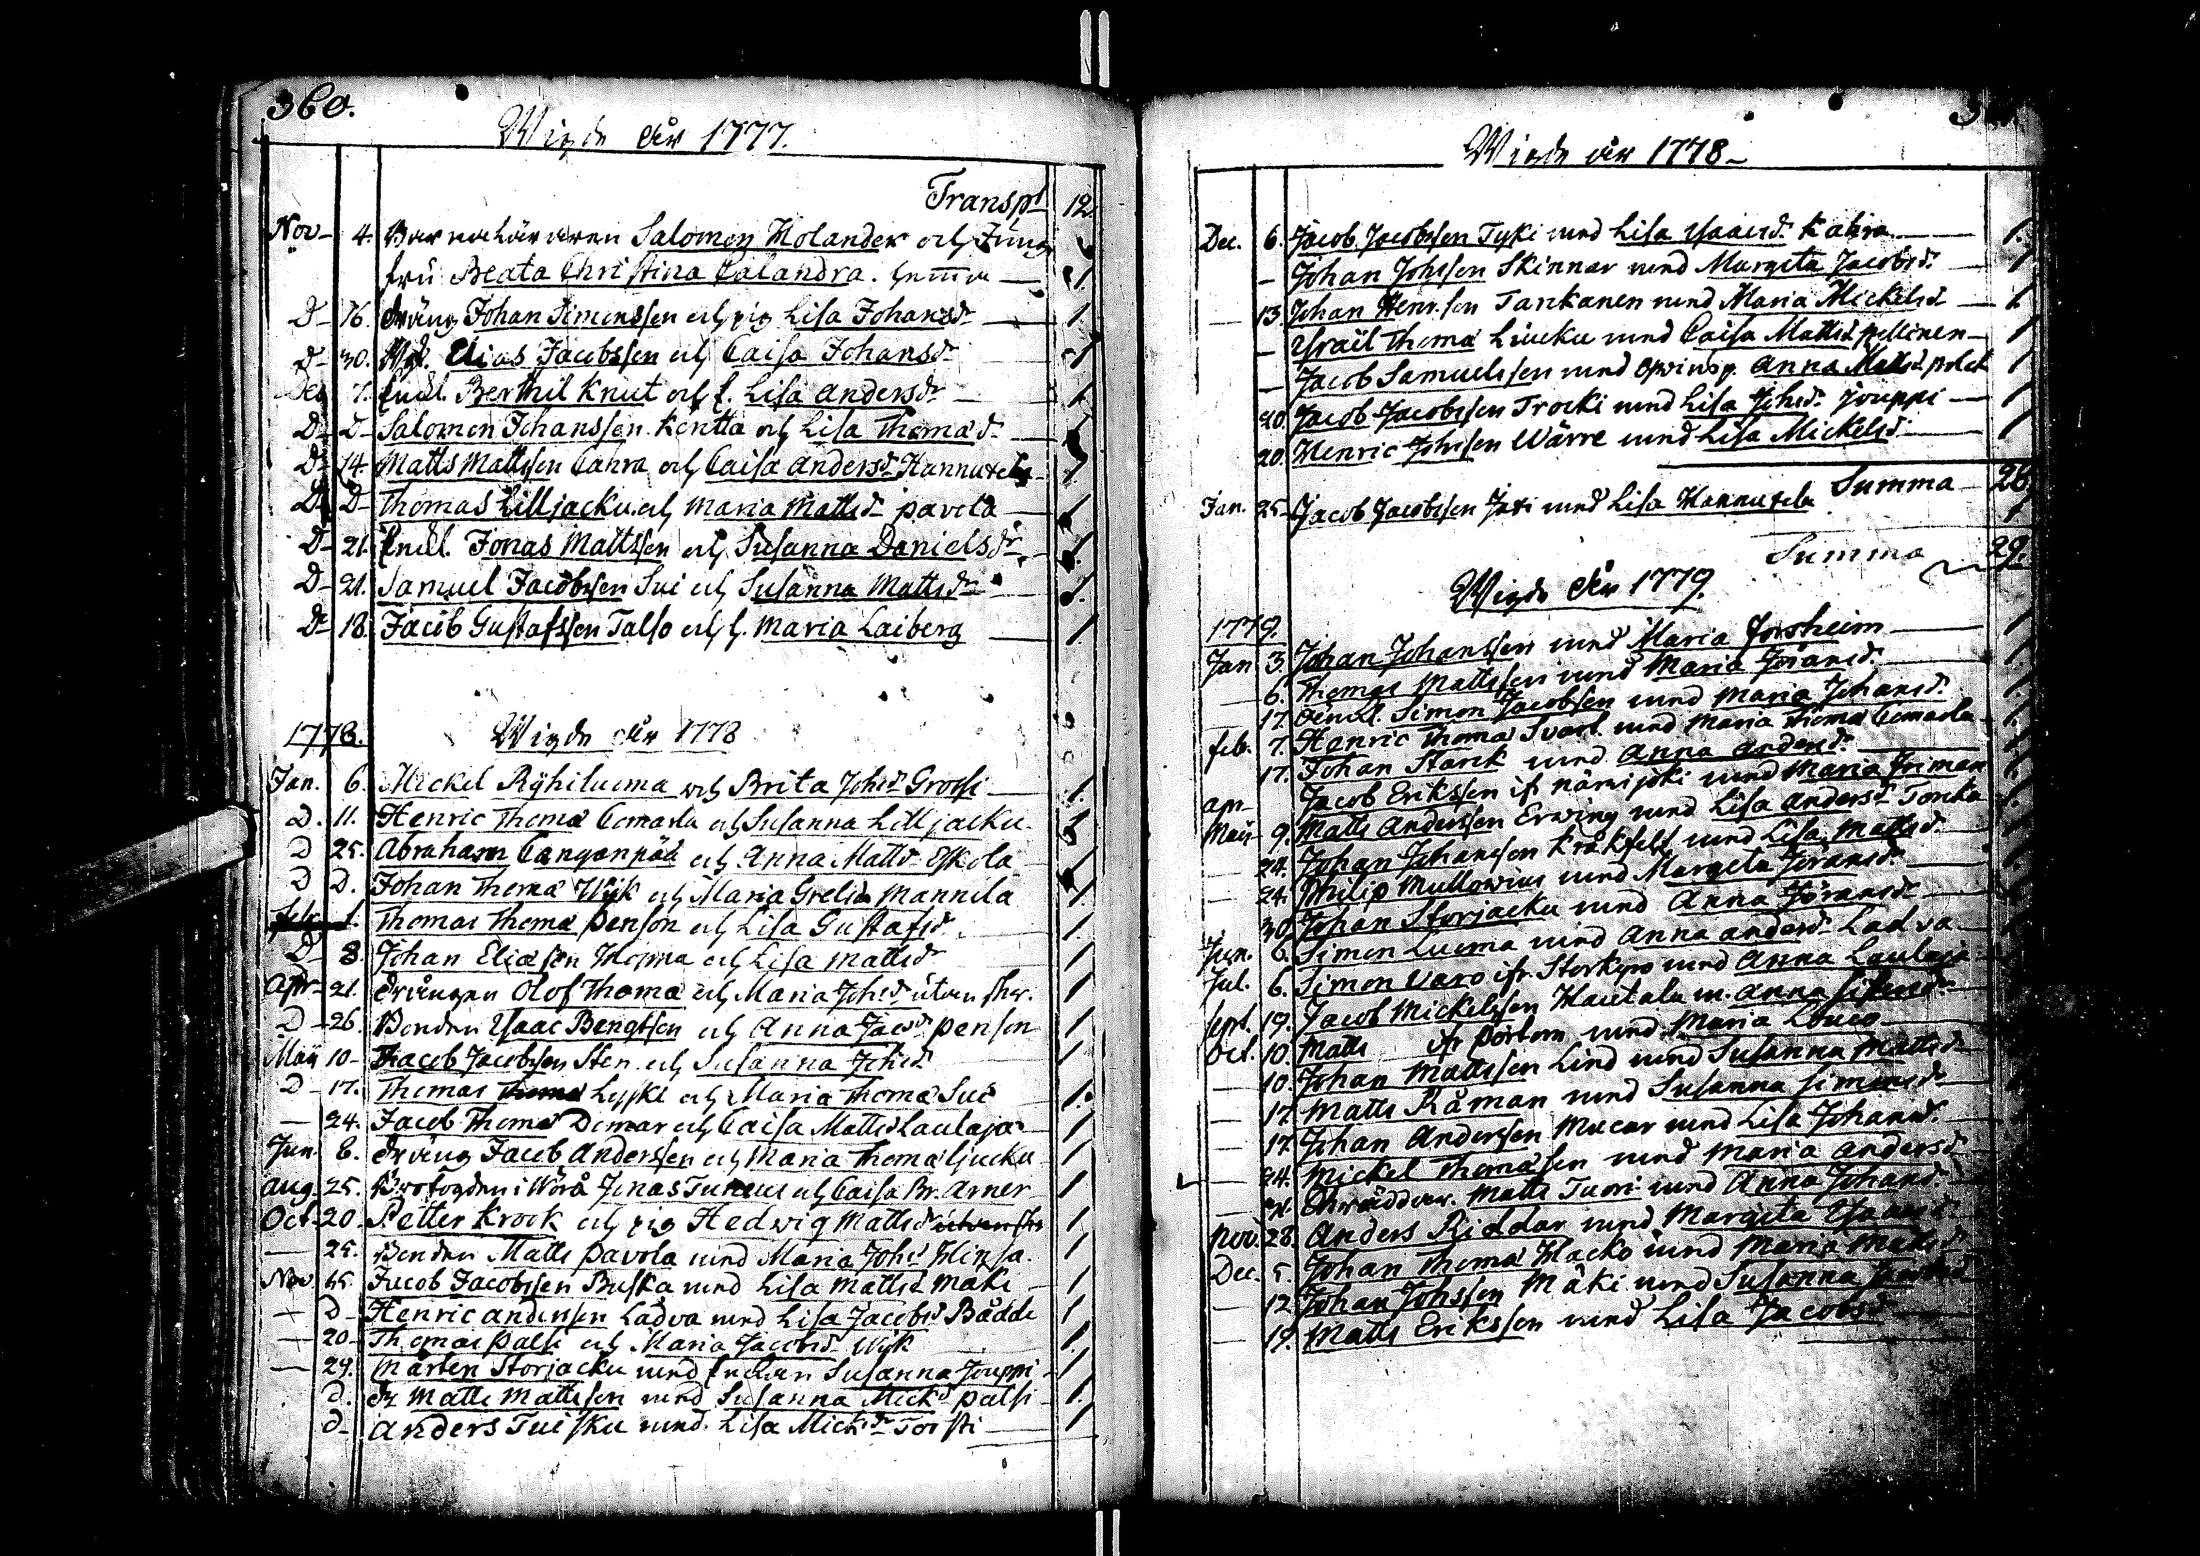 360.
Wigde År 1777.
Transpt 12
Nov. 4. Salomon Holander och Jung
fru Beata Christina Calandra. hemma 1
D 16. dräng Johan Simonssen och pig Lisa Johansdr 1
D 30. Elias Jacobssen och Caisa Johansd 1
Dec 7. Berthil Knut och f. Lisa Andersdr 1
D D Salomon Johanssen Kentta och Lisa Thomad. 1
D 14. Matts Mattssen Cahra och Caisa Andersdr Hannuxela 1
D D Thomas Lilljacku och Maria Mattsd Pavola 1
D 21. Jonas Mattssen och Susanna Danielsdr 1
D 21. Samuel Jacobssen Sui och Susanna Mattsdr 1
D 18. Jacob Gustafssen Talso och h. Maria Laiberg 1
1778. Wigde År 1778
Jan. 6. Mickel Ryhiluoma och Brita Johsd Grossi 1
D. 11. Henric Thoma Comaola och Susanna Lilljacku 1
D 25. Abraham Canganpää och Anna Mattsd Eskola 1
D D. Johan Thoma Wijk och Maria Grelsd Mannila 1
feb. 1. Thomas Thoma Penson och Lisa Gustafsd. 1
D 8. Johan Eliassen och Lisa Mattsd 1
Apr. 21. Drängen Olof Thoma och Maria Johsd 1
D 26. Bonden Isaac Bengtssen och Anna Jacsd Penson 1
Maij 10 Jacob Jacobssen Sten och Susanna Johsd 1
D 17. Thomas Thoma Lyski och Maria Thoma Sui 1.
24. Jacob Thoma Domar och Caisa Mattsd Laulaja 1
Jun. 8. dräng Jacob Anderssen och Maria Thoma Ljucku 1
Aug. 25. i Wörå Jonas Tuneus och Caisa Br. Arner 1
Oct. 20. Petter Krook och pig Hedwig Mattsd 1
25. Bonden Matts Pavola med Maria Johsd 1
Nov. 15. Jacob Jacobssen Buska med Lisa Mattsd Maki 1
D Henric Anderssen Ladva med Lisa Jacobsd Bådde 1
20 Thomas Palsi och Maria Jacobsd Wijk 1
29. Mårten Storjacku med Enckan Susanna Jouppi 1
D. Dr Matts Mattssen med Susanna Mickd Palsi 1.
D Anders Tuisku med Lisa Micksdr Torsti 1
Wigde år 1778
Dec. 6. Jacob Jacobssen Tyki med Lisa Isaacsd. Kahra 1.
Johan Johssen Skinnar med Margeta Jacobsd. 1
13. Johan Henr.sen Tarckanen med Maria Mickelsd 1
Israël Thoma Liucku med Caisa Mattsd Pellinen 1
Jacob Samuelssen med Anna Mattsd 1
20. Jacob Jacobssen Trocki med Lisa Johsd. Jouppi 1
20. Henric Johssen Wärre med Lisa Mickelsd 1
Summa 28
Jan. 25. Jacob Jacobssen med Lisa Hannuxela 1
Summa 29.
Wigde År 1779.
1779.
Jan 3. Johan Johanssen med Maria Forsheim 1
6. Thomas Mattssen med Maria Jöransd. 1
17. Simon Jacobssen med Maria Johansd. 1
feb. 7. Henric Thoma Svart med Maria Thoma Comaola 1
17. Johan Starck med Anna Andersd. 1
apr. Jacob Erikssen ifr Närvijoki med Maria Friman 1
Maij 9. Matts Anderssen Erving med Lisa Andersd Toncka 1
24. Johan Johanssen Kråkfelt med Lisa Mattsd. 1
24. Philip Mullowius med Margeta Jöransd. 1
30. Johan Storjacku med Anna Jöransd
Jun. 6. Simon Luoma med Anna Andersd. Ladva
Jul. 6. Simon Varo ifr. Storkyro med Anna Laulaja
Sept. 19. Jacob Mickelssen Hautala m. Anna
Oct. 10. Matts ifr Pörtom med Maria Louco
10. Johan Mattssen Lind med Susanna Mattsd
17. Matts Råman med Susanna Simonsd
17. Johan Anderssen Mucar med Lisa Johansd.
24. Mickel Thomassen med Maria Andersd
Matts Tuori med Anna Johansd.
Nov. 28. Anders Riddar med Margeta Isaacsd
Dec. 5. Johan Thoma Hacko med Maria Mattsd
12. Johan Johssen Mäki med Susanna
19. Matts Erikssen med Lisa Jacobsd